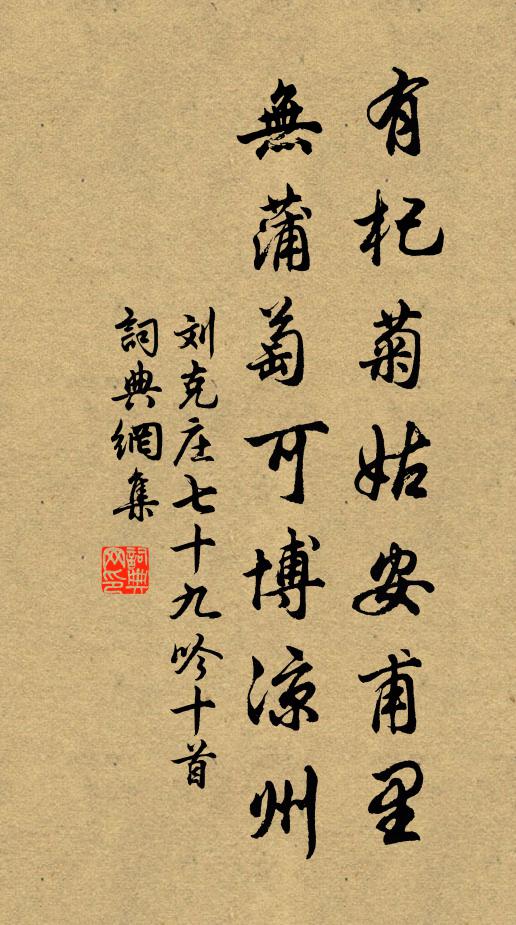 有杞菊姑安甫里
無蒲萄可博凉州
刘克庄七十九吟十首
詞典網集
詞典网印